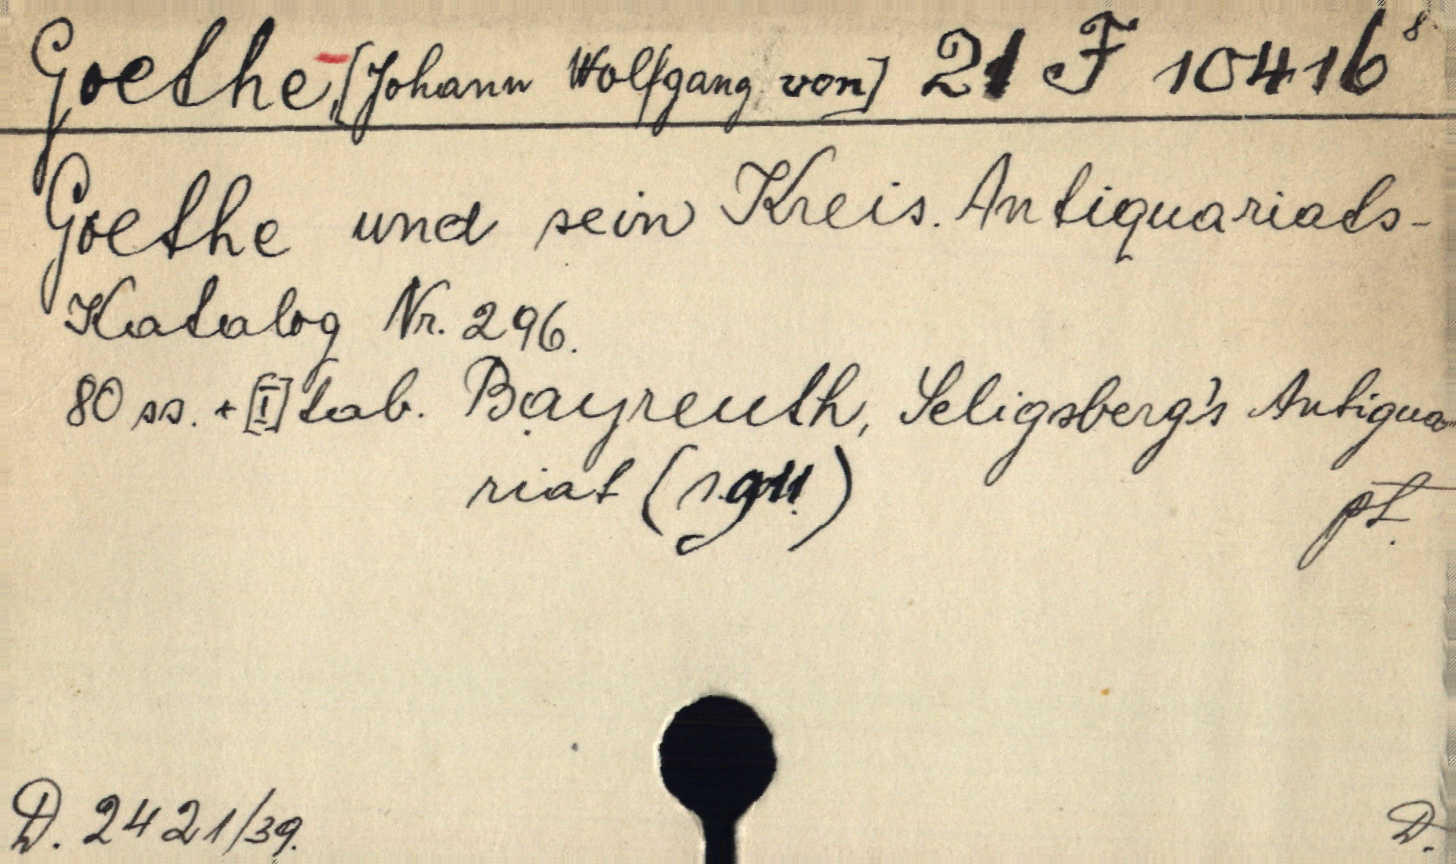 Goethe, [Johann Wolfgang von] 21 F 10416⁸
Goethe und sein Kreis. Antiquariats-
Katalog Nr. 296.
80 ss. + [I] tab. Bayreuth, Seligsberg's Antiqua-
riat
pf.
D. 2421/39.
D.